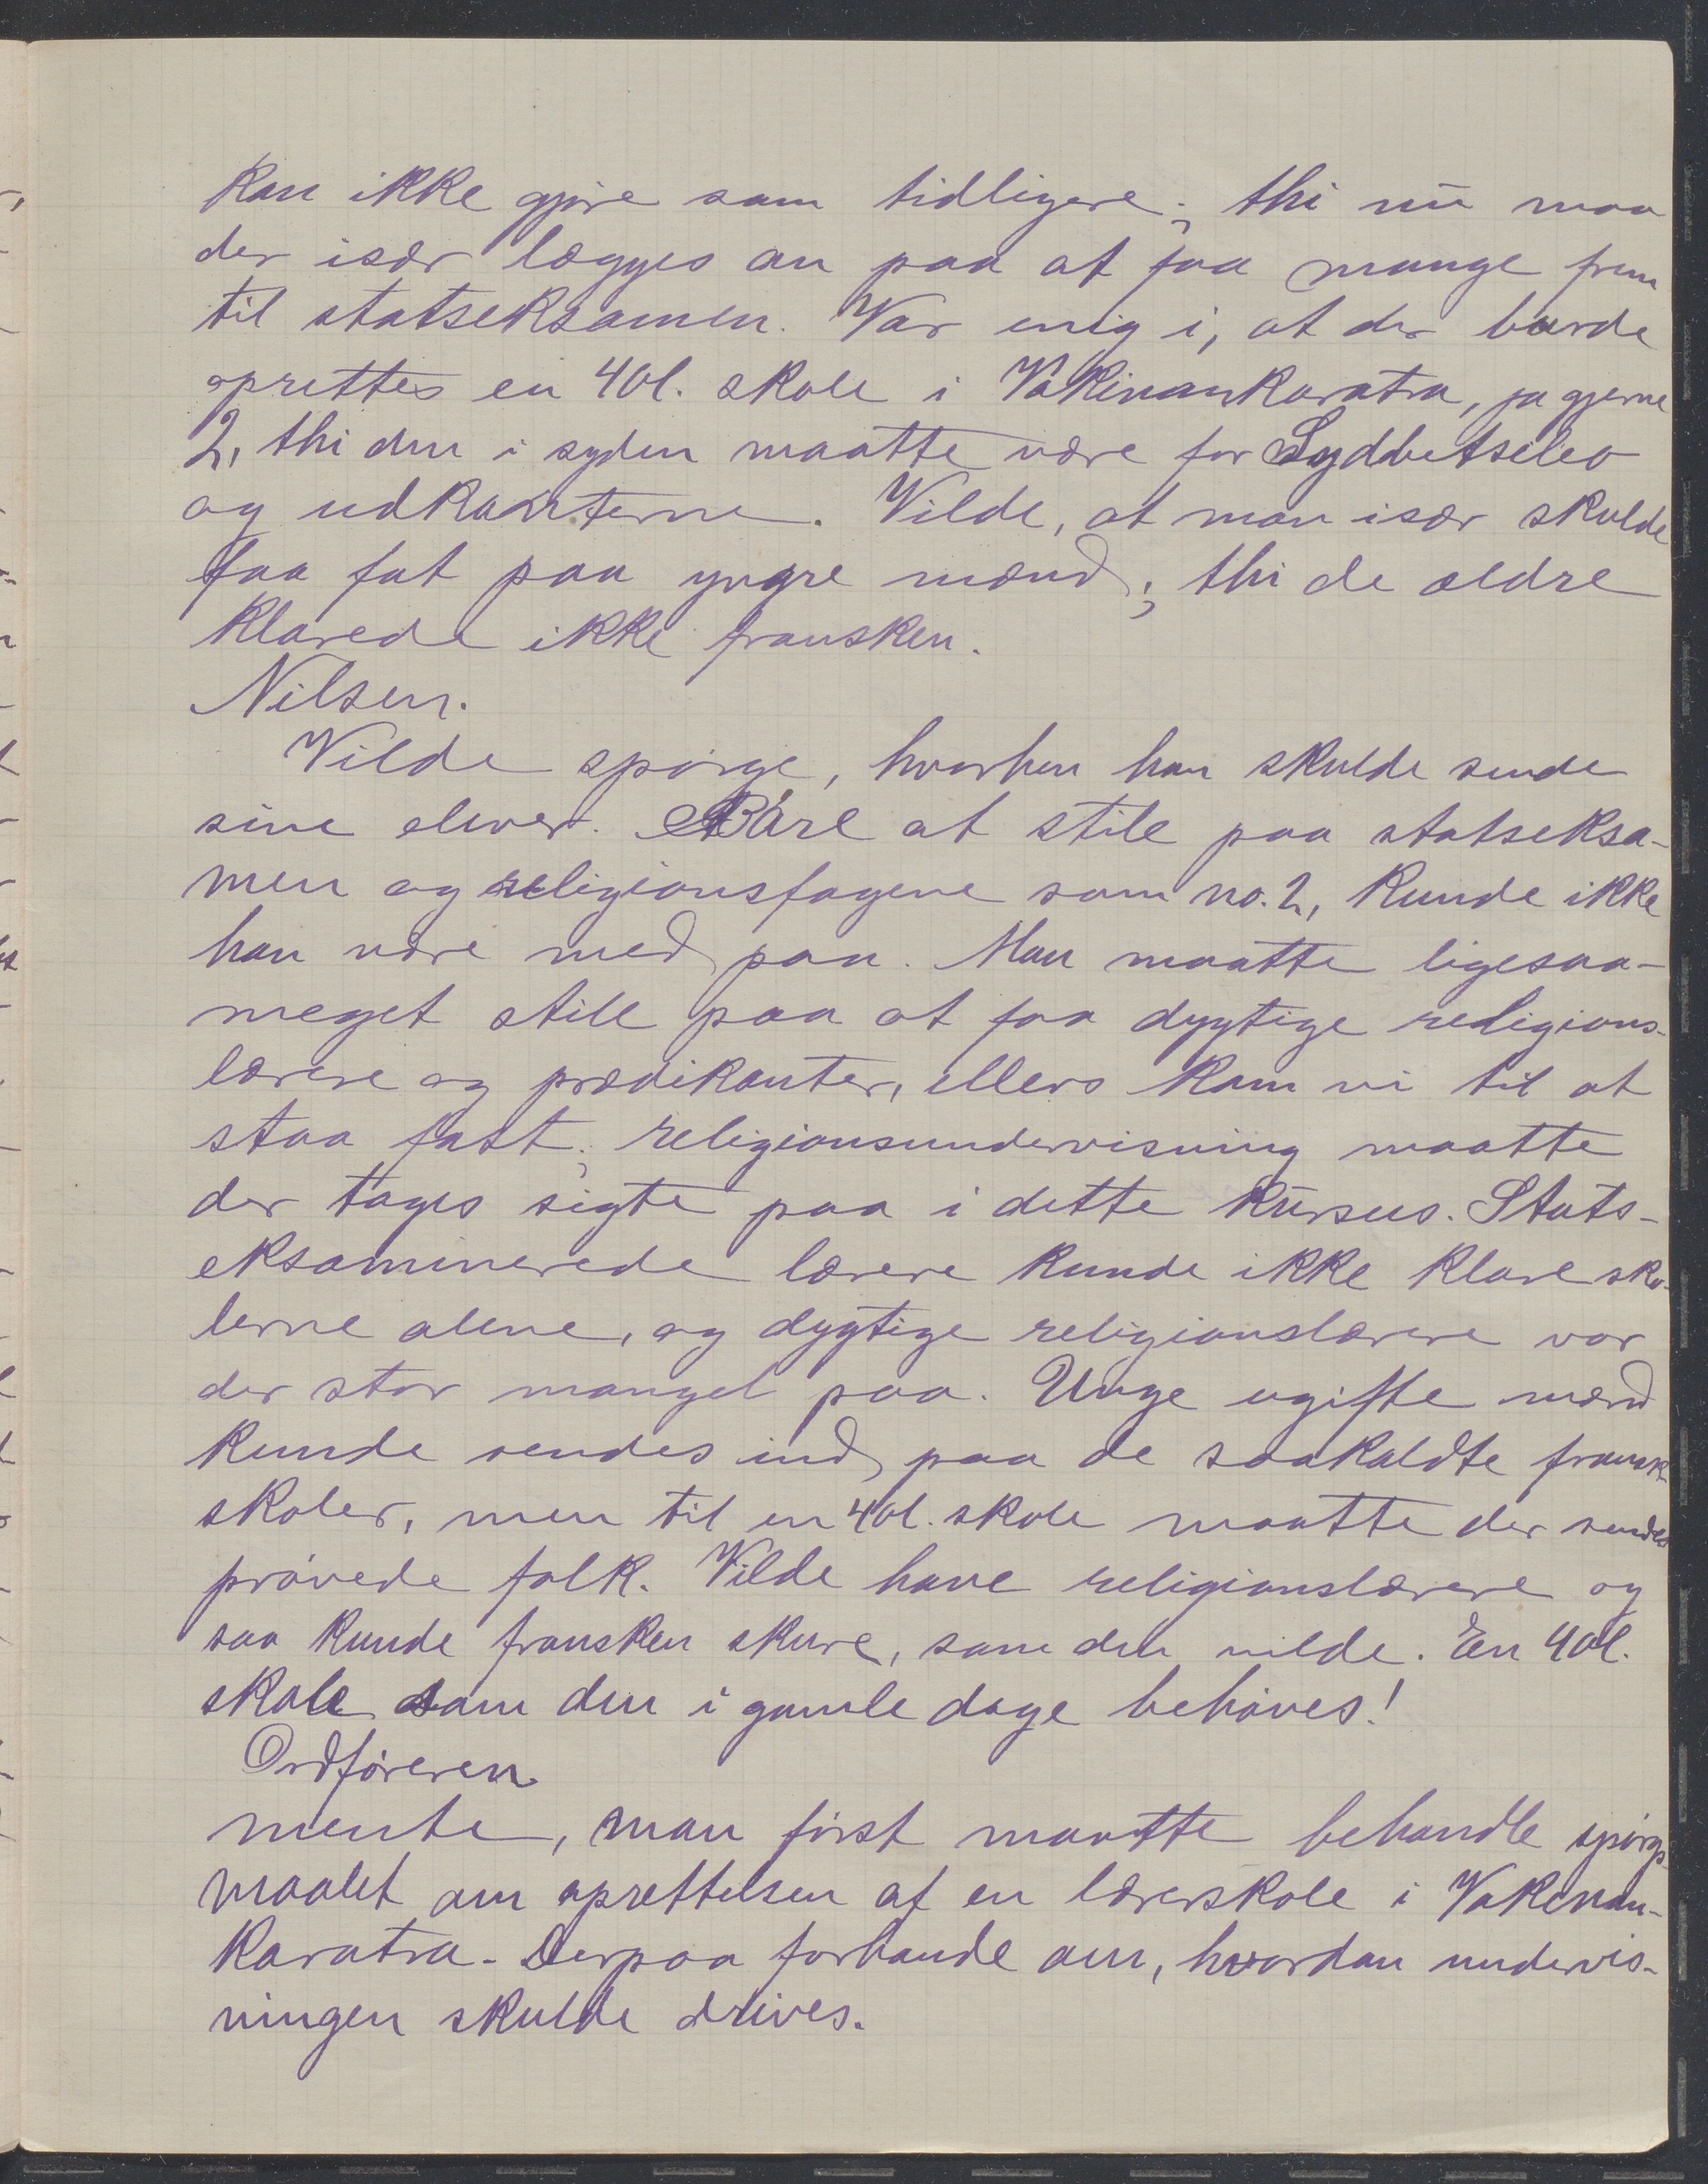 kan ikke gjøre som tidligere; thi nu maa
der især lægges an paa at faa mange frem
til statseksamen. Var enig i, at der burde
oprettes en 4 kl. skole i Vakinankaratra, ja gjerne
2, thi den i syden maatte være for Sydbetsileo
og udkanterne. Vilde, at man især skulde
faa fat paa yngre mænd; thi de ældre
klarede ikke fransken.
Nilsen.
Vilde spørge, hvorhen han skulde sende
sine elever. Bare at stile paa statseksa-
men og religionsfagene som no. 2, kunde ikke
han være med paa. Man maatte ligesaa-
meget stile paa at faa dygtige religions-
lærere og prædikanter, ellers kom vi til at
staa fast; religionsundervisning maatte
der tages sigte paa i dette kursus. Stats-
eksaminerede lærere kunde ikke klare sko-
lerne alene, og dygtige religionslærere var
der stor mangel paa. Unge ugifte mænd
kunde sendes ind paa de saakaldte fransk-
skoler, men til en 4 kl. skole maatte der sendes
prøvede folk. Vilde have religionslærere og
saa kunde fransken skure, som den vilde. En 4 kl.
skole som den i gamle dage behøves!
Ordføreren
mente, man først maatte behandle spørgs-
maalet om oprettelsen af en lærerskole i Vakinan-
karatra. Derpaa forhandle om, hvordan undervis-
ningen skulde drives.